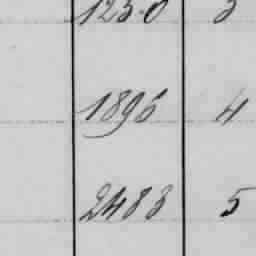 1250 3
1896 4
2483 5